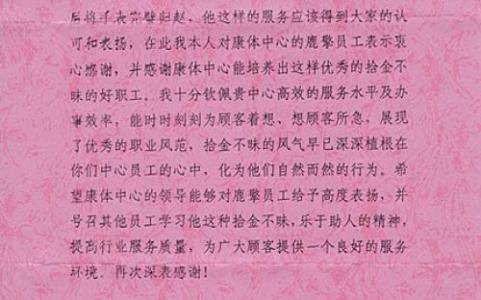 后将手表完璧归赵，他这样的服务应该得到大家的认
可和表扬，在此我本人对康体中心的鹿擎员工表示衷
心感谢，并感谢康体中心能培养出这样优秀的拾金不
昧的好职工。我十分钦佩贵中心高效的服务水平及办
事效率，能时时刻刻为顾客着想、想顾客所急，展现
了优秀的职业风范，拾金不昧的风气早已深深植根在
你们中心员工的心中，化为他们自然而然的行为。希
望康体中心的领导能够对鹿擎员工给予高度表扬，并
号召其他员工学习他这种拾金不昧，乐于助人的精神，
提高行业服务质量，为广大顾客提供一个良好的服务
环境。再次深表感谢！